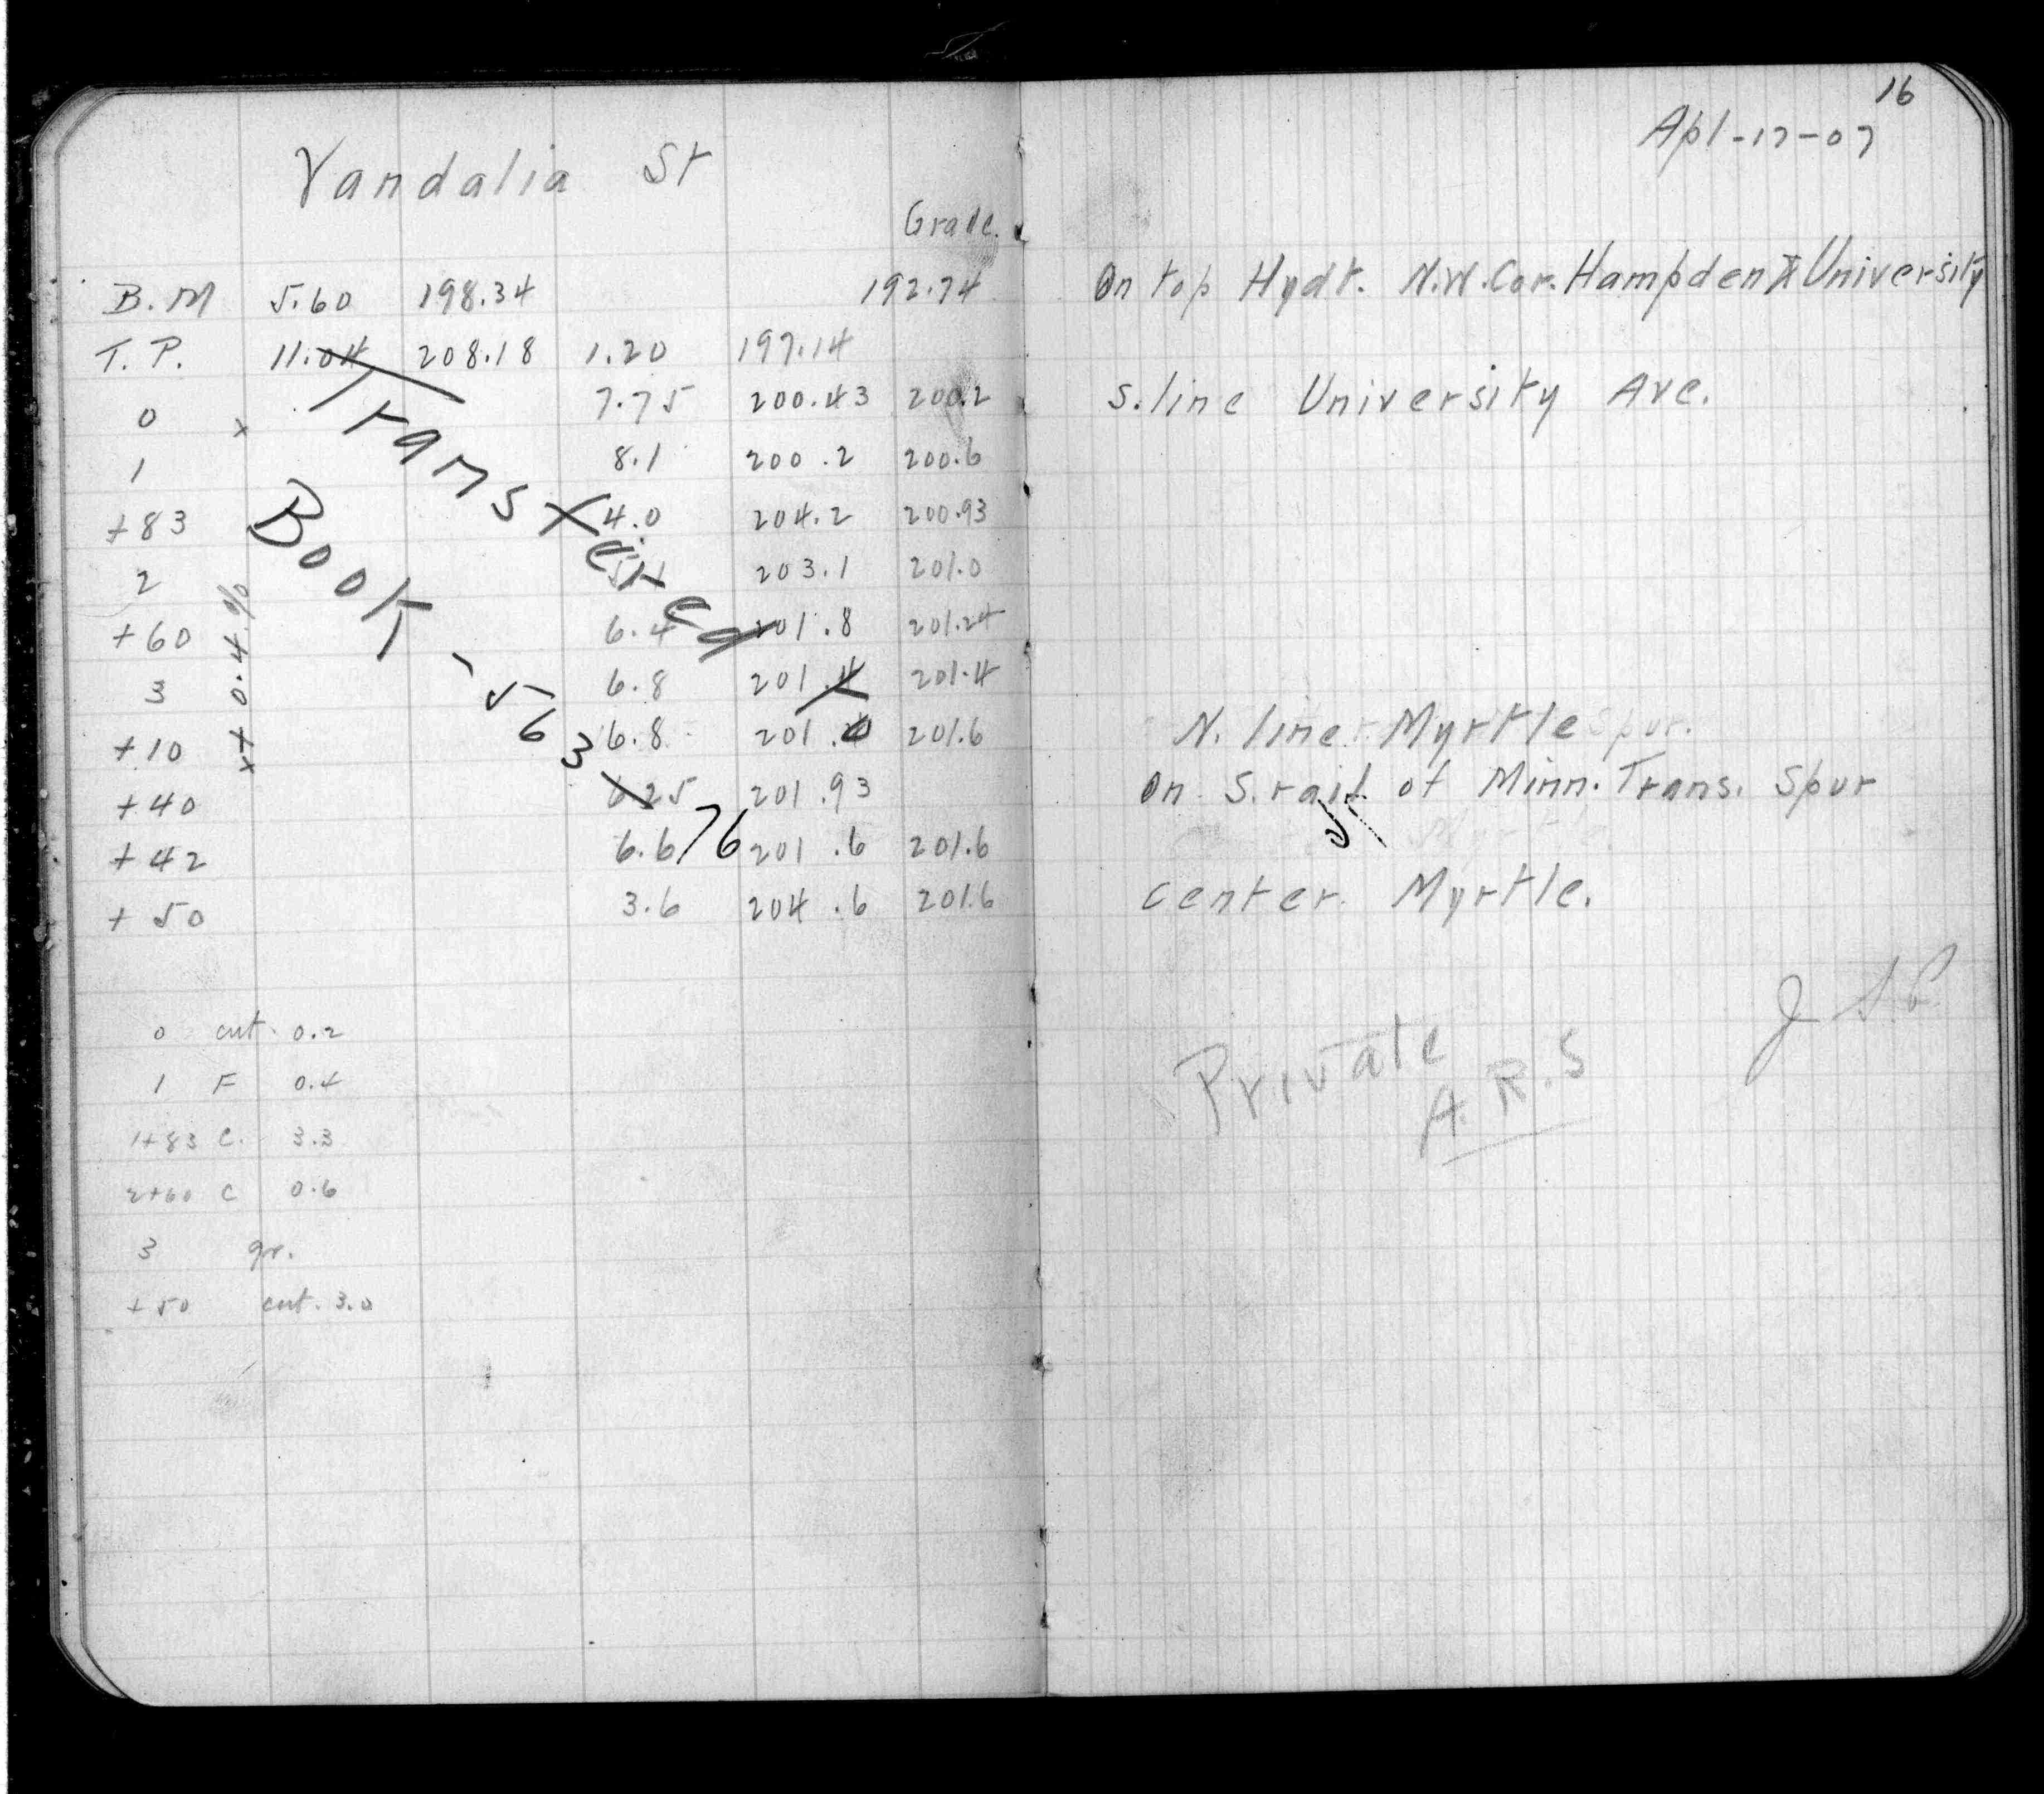 16
Apl-17-07
Vandalia St
Grade.
B.M 5.60 198.34 192.74 On top Hydt. N.W. Cor. Hampden & University
T.P. 11.04 208.18 1.20 197.14
0 x 7.75 200.43 200.2 S. line University Ave.
1 8.1 200.2 200.6
+83 4.0 204.2 200.93
2 203.1 201.0
+60 6.4 201.8 201.24
3 6.8 201.4 201.4
+10 6.8 201. 201.6 N. line Myrtle
+40 6.25 201.93 On S. rail of Minn. Trans. Spur
+42 6.6 201.6 201.6
+50 3.6 204.6 201.6 center Myrtle.
+0.4%
Transfered
Book - 563 76
0 cut 0.2
1 F 0.4
1+83 C. 3.3
2+60 C 0.6
3 gr.
+50 cut. 3.0
Private
A.R.S